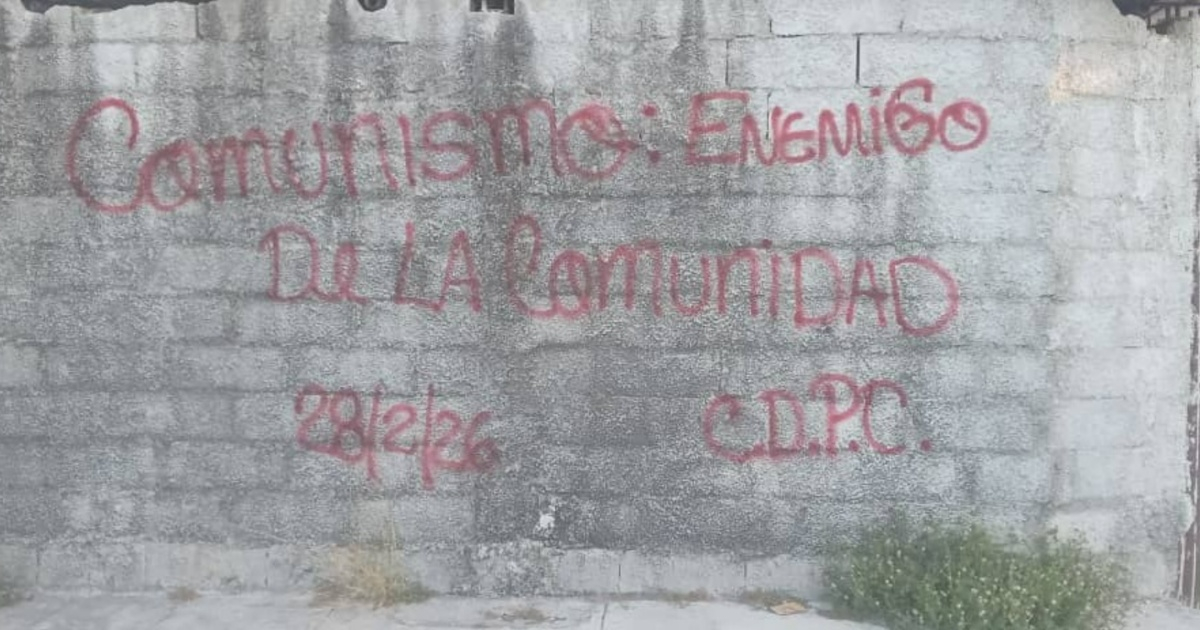 Comunismo: ENEMiGO
De LA ComuniDAD
28/2/26 C.D.P.C.